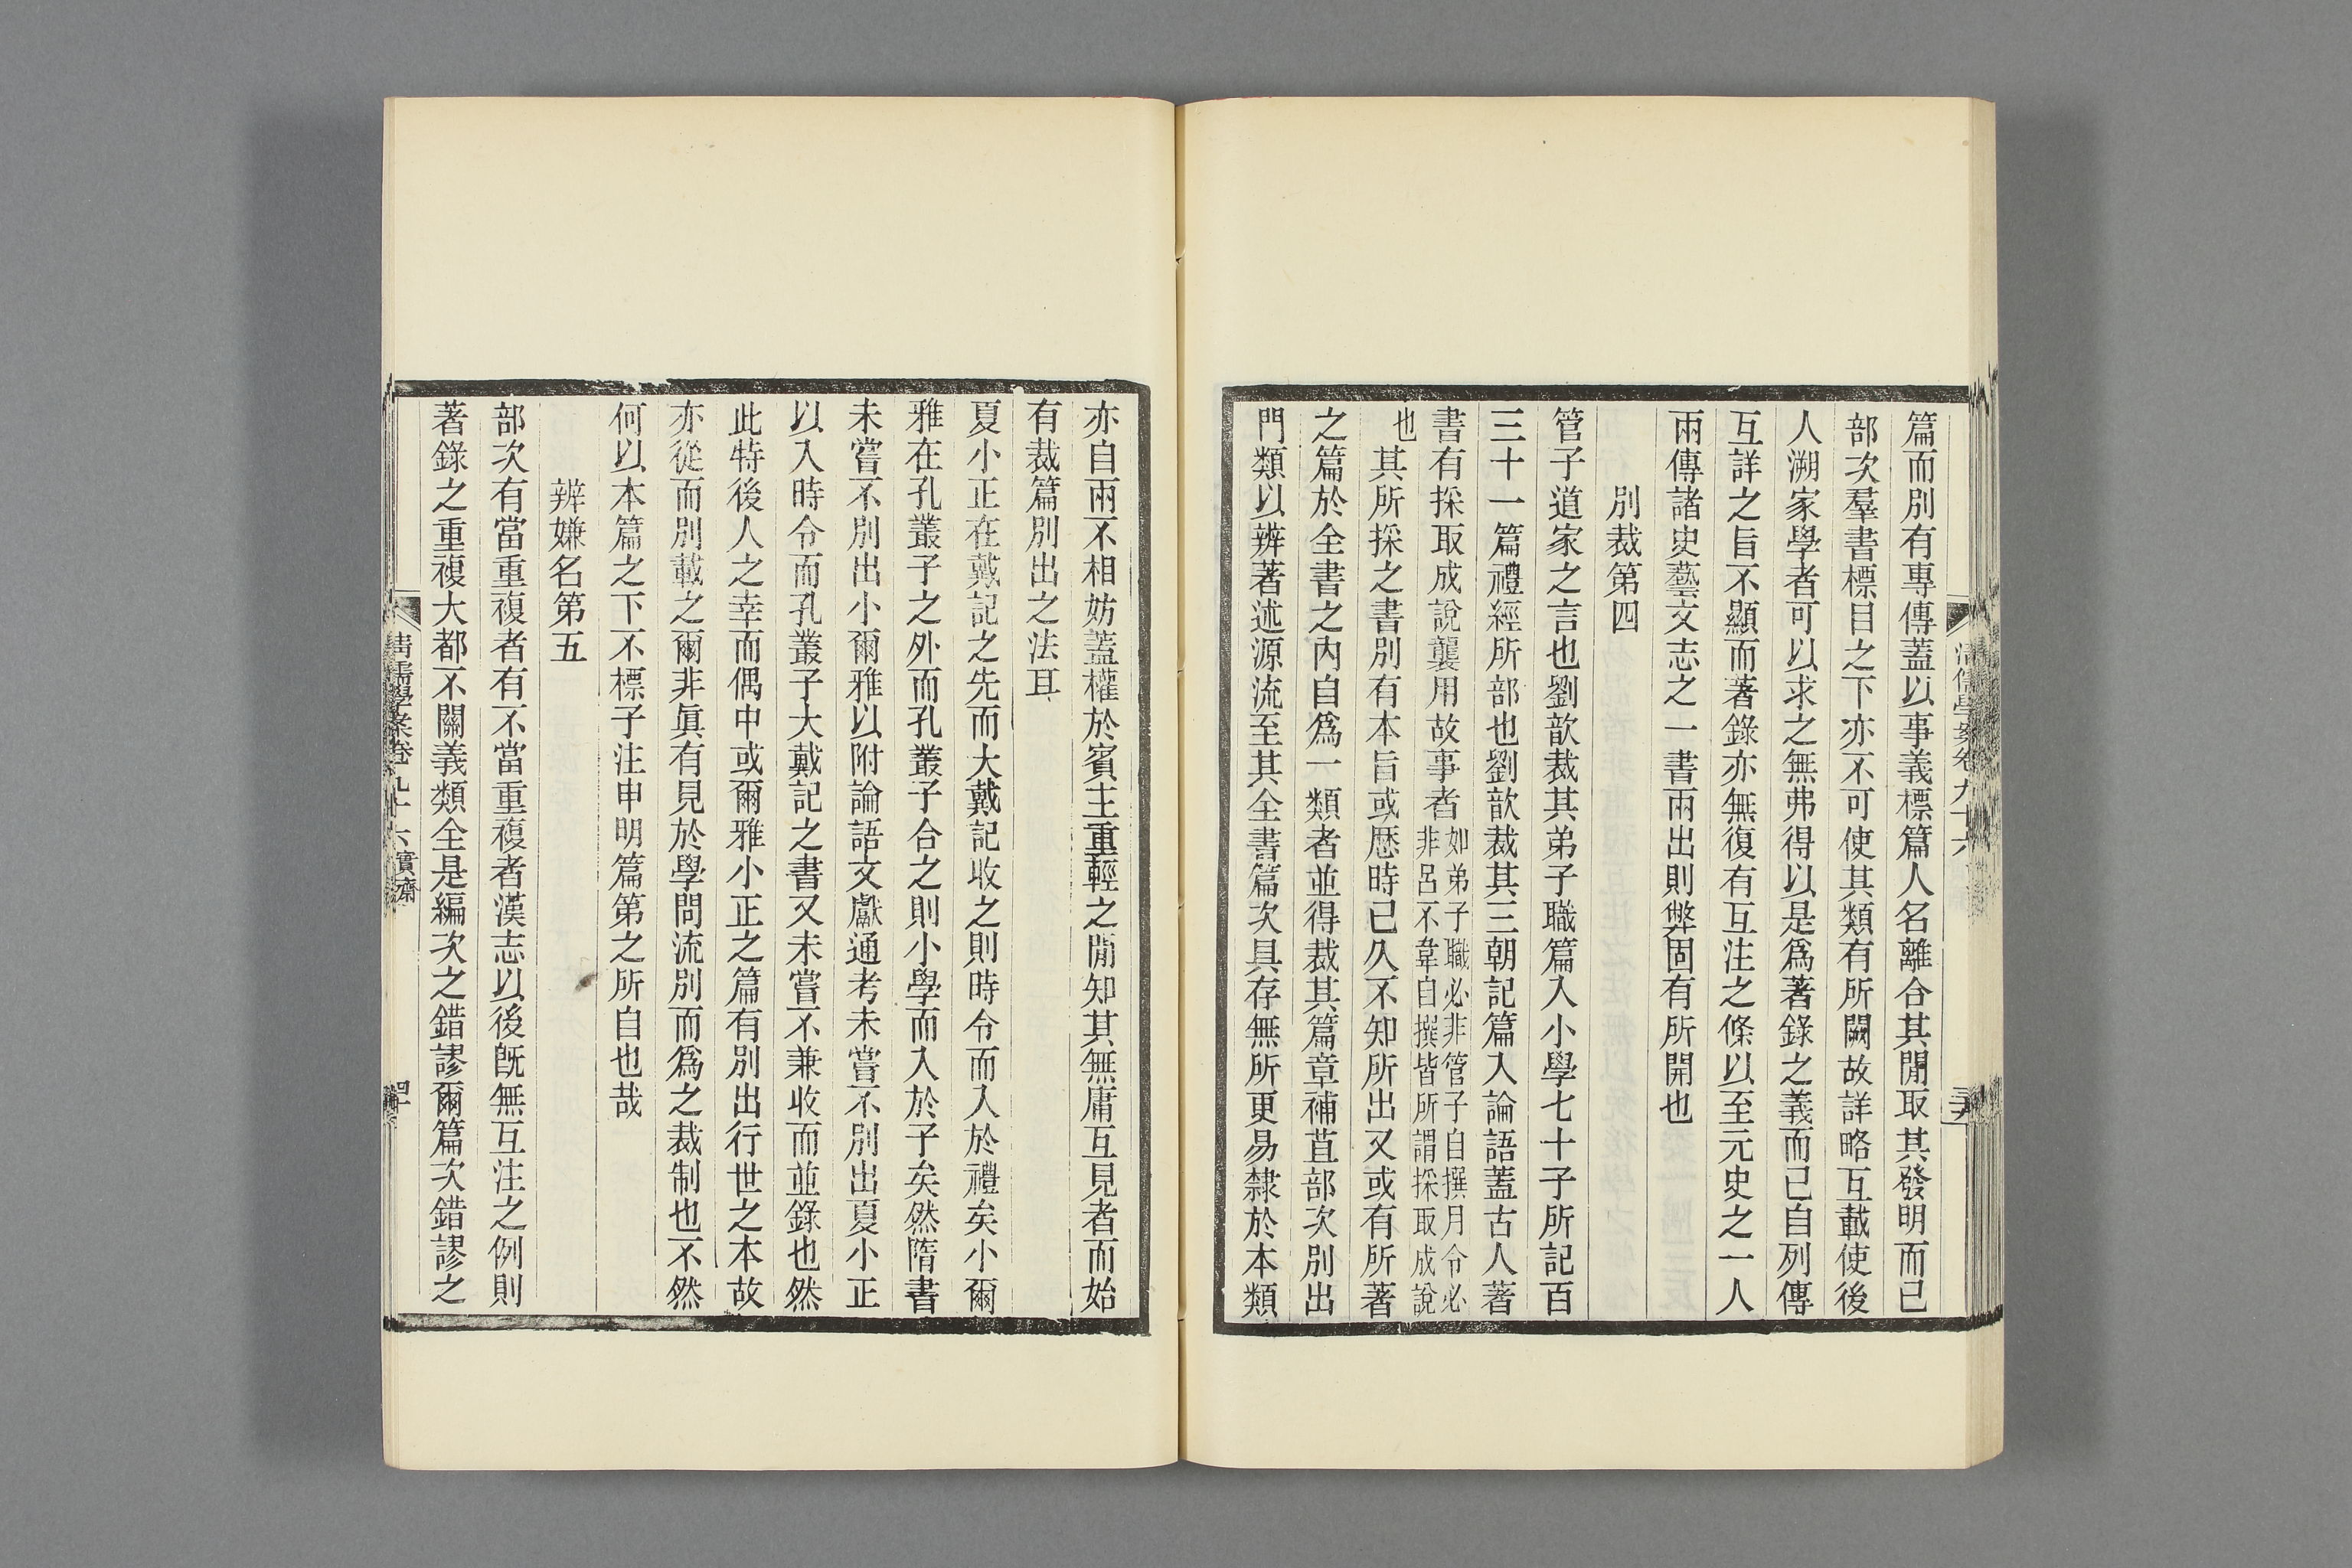 篇而別有專傳蓋以事義標篇人名離合其閒取其發明而已
部次羣書標目之下亦不可使其類有所闕故詳略互載使後
人溯家學者可以求之無弗得以是爲著錄之義而已自列傳
互詳之旨不顯而著錄亦無復有互注之條以至元史之一人
兩傳諸史藝文志之一書兩出則弊固有所開也
別裁第四
管子道家之言也劉歆裁其弟子職篇入小學七十子所記百
三十一篇禮經所部也劉歆裁其三朝記篇入論語蓋古人著
書有採取成說襲用故事者如弟子職必非管子自撰月令必
非呂不韋自撰皆所謂採取成說
也其所採之書別有本旨或歷時已久不知所出又或有所著
之篇於全書之內自爲一類者並得裁其篇章補苴部次別出
門類以辨著述源流至其全書篇次具存無所更易隸於本類
亦自兩不相妨蓋權於賓主重輕之閒知其無庸互見者而始
有裁篇別出之法耳
夏小正在戴記之先而大戴記收之則時令而入於禮矣小爾
雅在孔叢子之外而孔叢子合之則小學而入於子矣然隋書
未嘗不別出小爾雅以附論語文獻通考未嘗不別出夏小正
以入時令而孔叢子大戴記之書又未嘗不兼收而並錄也然
此特後人之幸而偶中或爾雅小正之篇有別出行世之本故
亦從而別載之爾非眞有見於學問流別而爲之裁制也不然
何以本篇之下不標子注申明篇第之所自也哉
辨嫌名第五
部次有當重複者有不當重複者漢志以後旣無互注之例則
著錄之重複大都不關義類全是編次之錯謬爾篇次錯謬之
清儒學案卷九十六實齋
四十